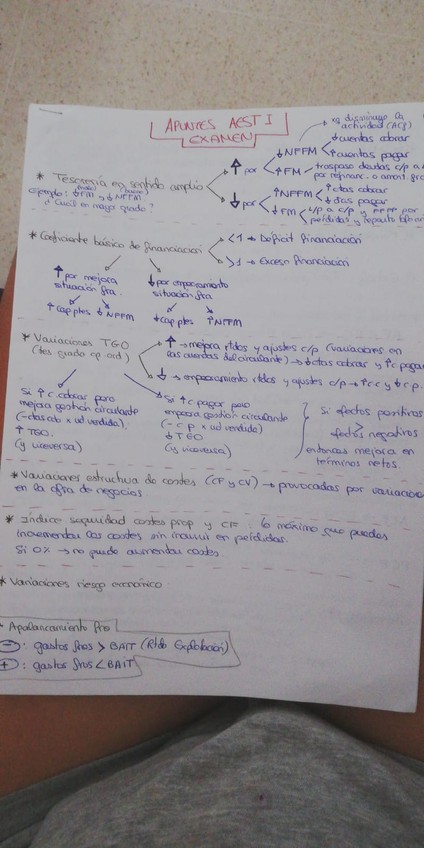 APUNTES AEST I
EXAMEN
* Tesorería en sentido amplio
ejemplo: ↓FM y ↓NFFM
¿Cuál en mayor grado?
↑ por
↓NFFM
disminuye la
actividad (ACP)
↓cuentas cobrar
↑cuentas pagar
↑FM
traspaso deudas c/p a
por refinanc. o amort
↓ por
↑NFFM
↑ctas cobrar
↓ctas pagar
↓FM
L/p a c/p y
pérdidas y reparto
* Coeficiente básico de financiación
<1 → Déficit financiación
>1 → Exceso financiación
↑ por mejora
situación fra.
↑cap ptes ↓NFFM
↓ por empeoramiento
situación fra
↓cap ptes ↑NFFM
* Variaciones TGO
(tes grado op. oid)
↑ → mejora rtdos y ajustes c/p (variaciones en
las cuentas del circulante) → ↓ctas cobrar y ↑c pagar
↓ → empeoramiento rtdos y ajustes c/p → ↑cc y ↓c.p.
Si ↑c cobrar pero
mejora gestión circulante
(-clas ob x ud vendida).
↑ TGO.
(y viceversa)
Si ↑c pagar pero
empeora gestión circulante
(- c p x ud vendida)
↓ TGO
(y viceversa)
Si efectos positivos
>
efectos negativos
entonces mejora en
términos netos.
* Variaciones estructura de costes (CF y CV) → provocadas por variación
en la cifra de negocios
* Índice seguridad costes prop y CF: lo máximo que puedes
incrementar los costes sin incurrir en pérdidas.
Si 0% → no puede aumentar costes.
* Variaciones riesgo económico
* Apalancamiento fro
-: gastos fros > BAIT (Rtdo Explotación)
+: gastos fros < BAIT